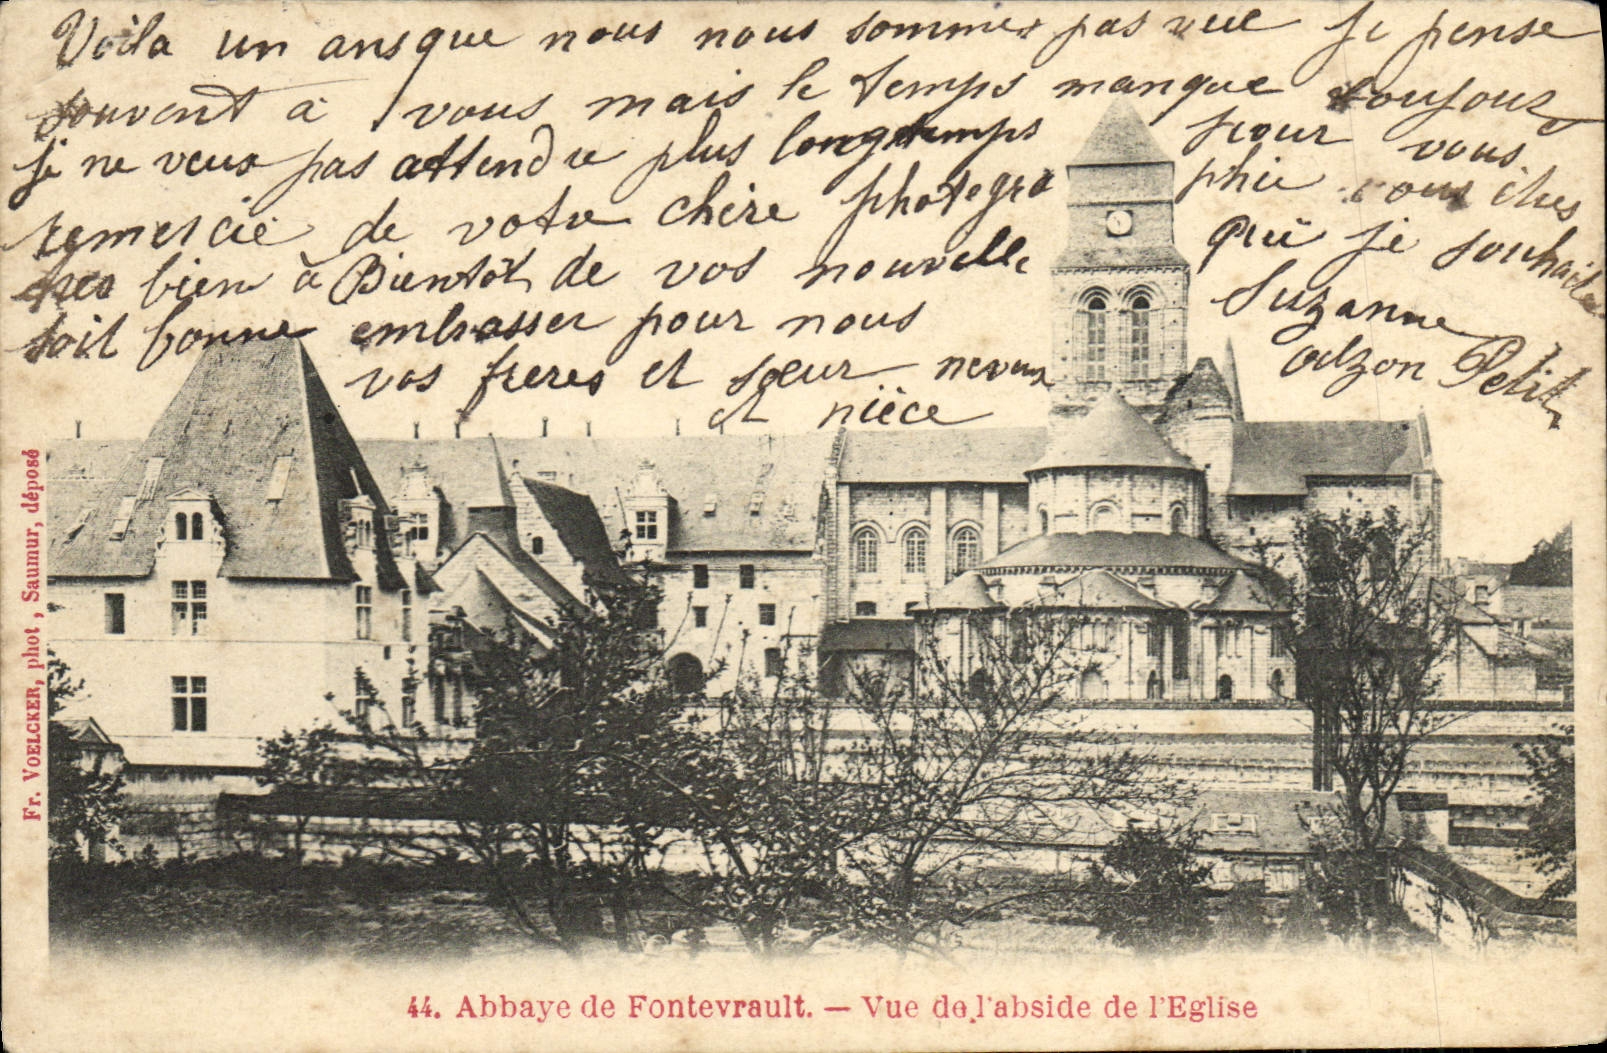 Voila un ans que nous nous sommes pas vue Je pense
souvent à vous mais le temps manque toujour
je ne veux pas attendre plus longtemps pour vous
remercie de votre chère photogra phie vous êtes
tres bien à Bientôt de vos nouvelle que je souhaite
soit bonne embrasser pour nous Suzanne
vos freres et sœur neveux Petit
et nièce
Fr. VOELCKER, phot, Saumur, déposé
44. Abbaye de Fontevrault. — Vue de l'abside de l'Eglise